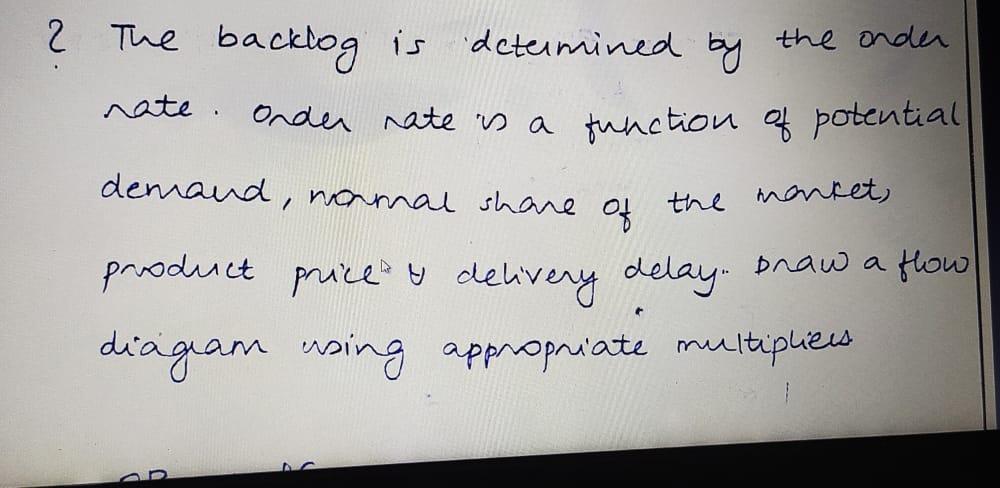 2. The backlog is determined by the order
rate. Order rate is a function of potential
demand, normal share of the market,
product price & delivery delay. Draw a flow
diagram using appropriate multipliers